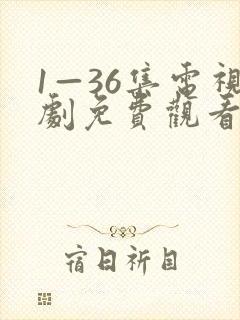 1—36集電視
劇免費觀看
宿日祈目